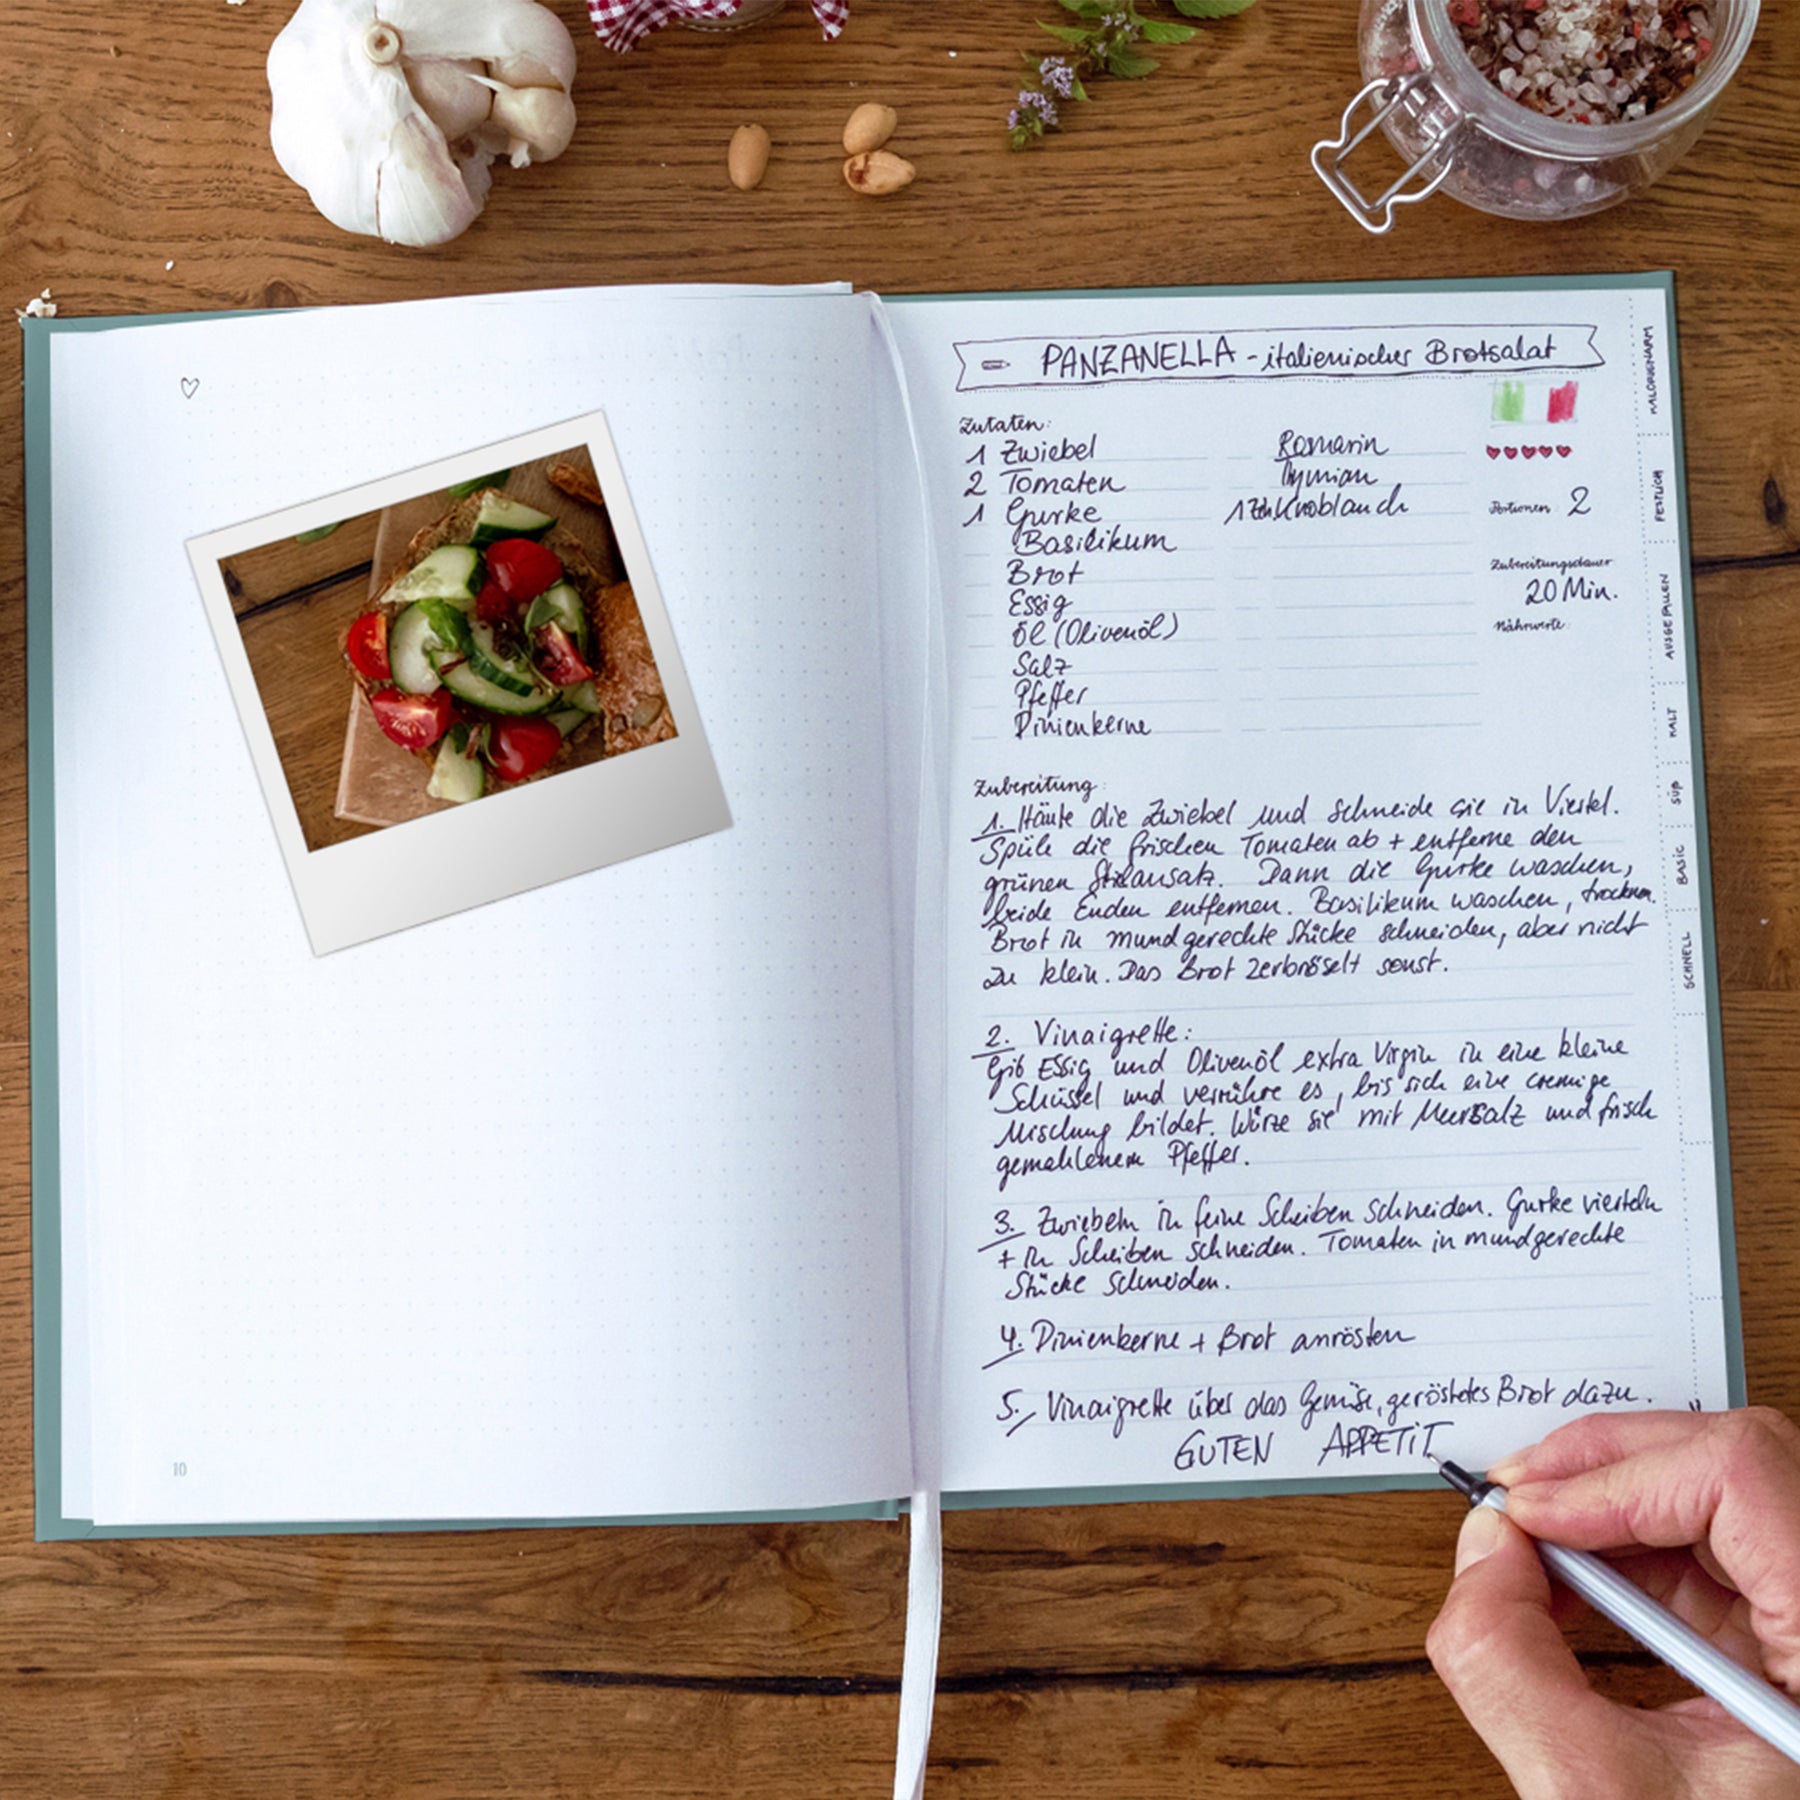 PANZANELLA - italienischer Brotsalat
Zutaten:
1 Zwiebel
2 Tomaten
1 Gurke
Basilikum
Brot
Essig
Öl (Olivenöl)
Salz
Pfeffer
Pinienkerne
Rosmarin
Thymian
1 Zeh Knoblauch
Portionen 2
Zubereitungsdauer
20 Min.
Nährwerte:
Zubereitung:
1. Häute die Zwiebel und schneide sie in Viertel.
Spüle die frischen Tomaten ab + entferne den
grünen Stielansatz. Dann die Gurke waschen,
beide Enden entfernen. Basilikum waschen, trocknen.
Brot in mundgerechte Stücke schneiden, aber nicht
zu klein. Das Brot zerbröselt sonst.
2. Vinaigrette:
Gib Essig und Olivenöl extra Virgin in eine kleine
Schüssel und verrühre es, bis sich eine cremige
Mischung bildet. Würze sie mit Meersalz und frisch
gemahlenem Pfeffer.
3. Zwiebeln in feine Scheiben schneiden. Gurke vierteln
+ in Scheiben schneiden. Tomaten in mundgerechte
Stücke schneiden.
4. Pinienkerne + Brot anrösten
5. Vinaigrette über das Gemüse, geröstetes Brot dazu.
GUTEN APPETIT
KALORIENARM
FESTLICH
AUSGEFALLEN
KALT
SÜß
BASIC
SCHNELL
10